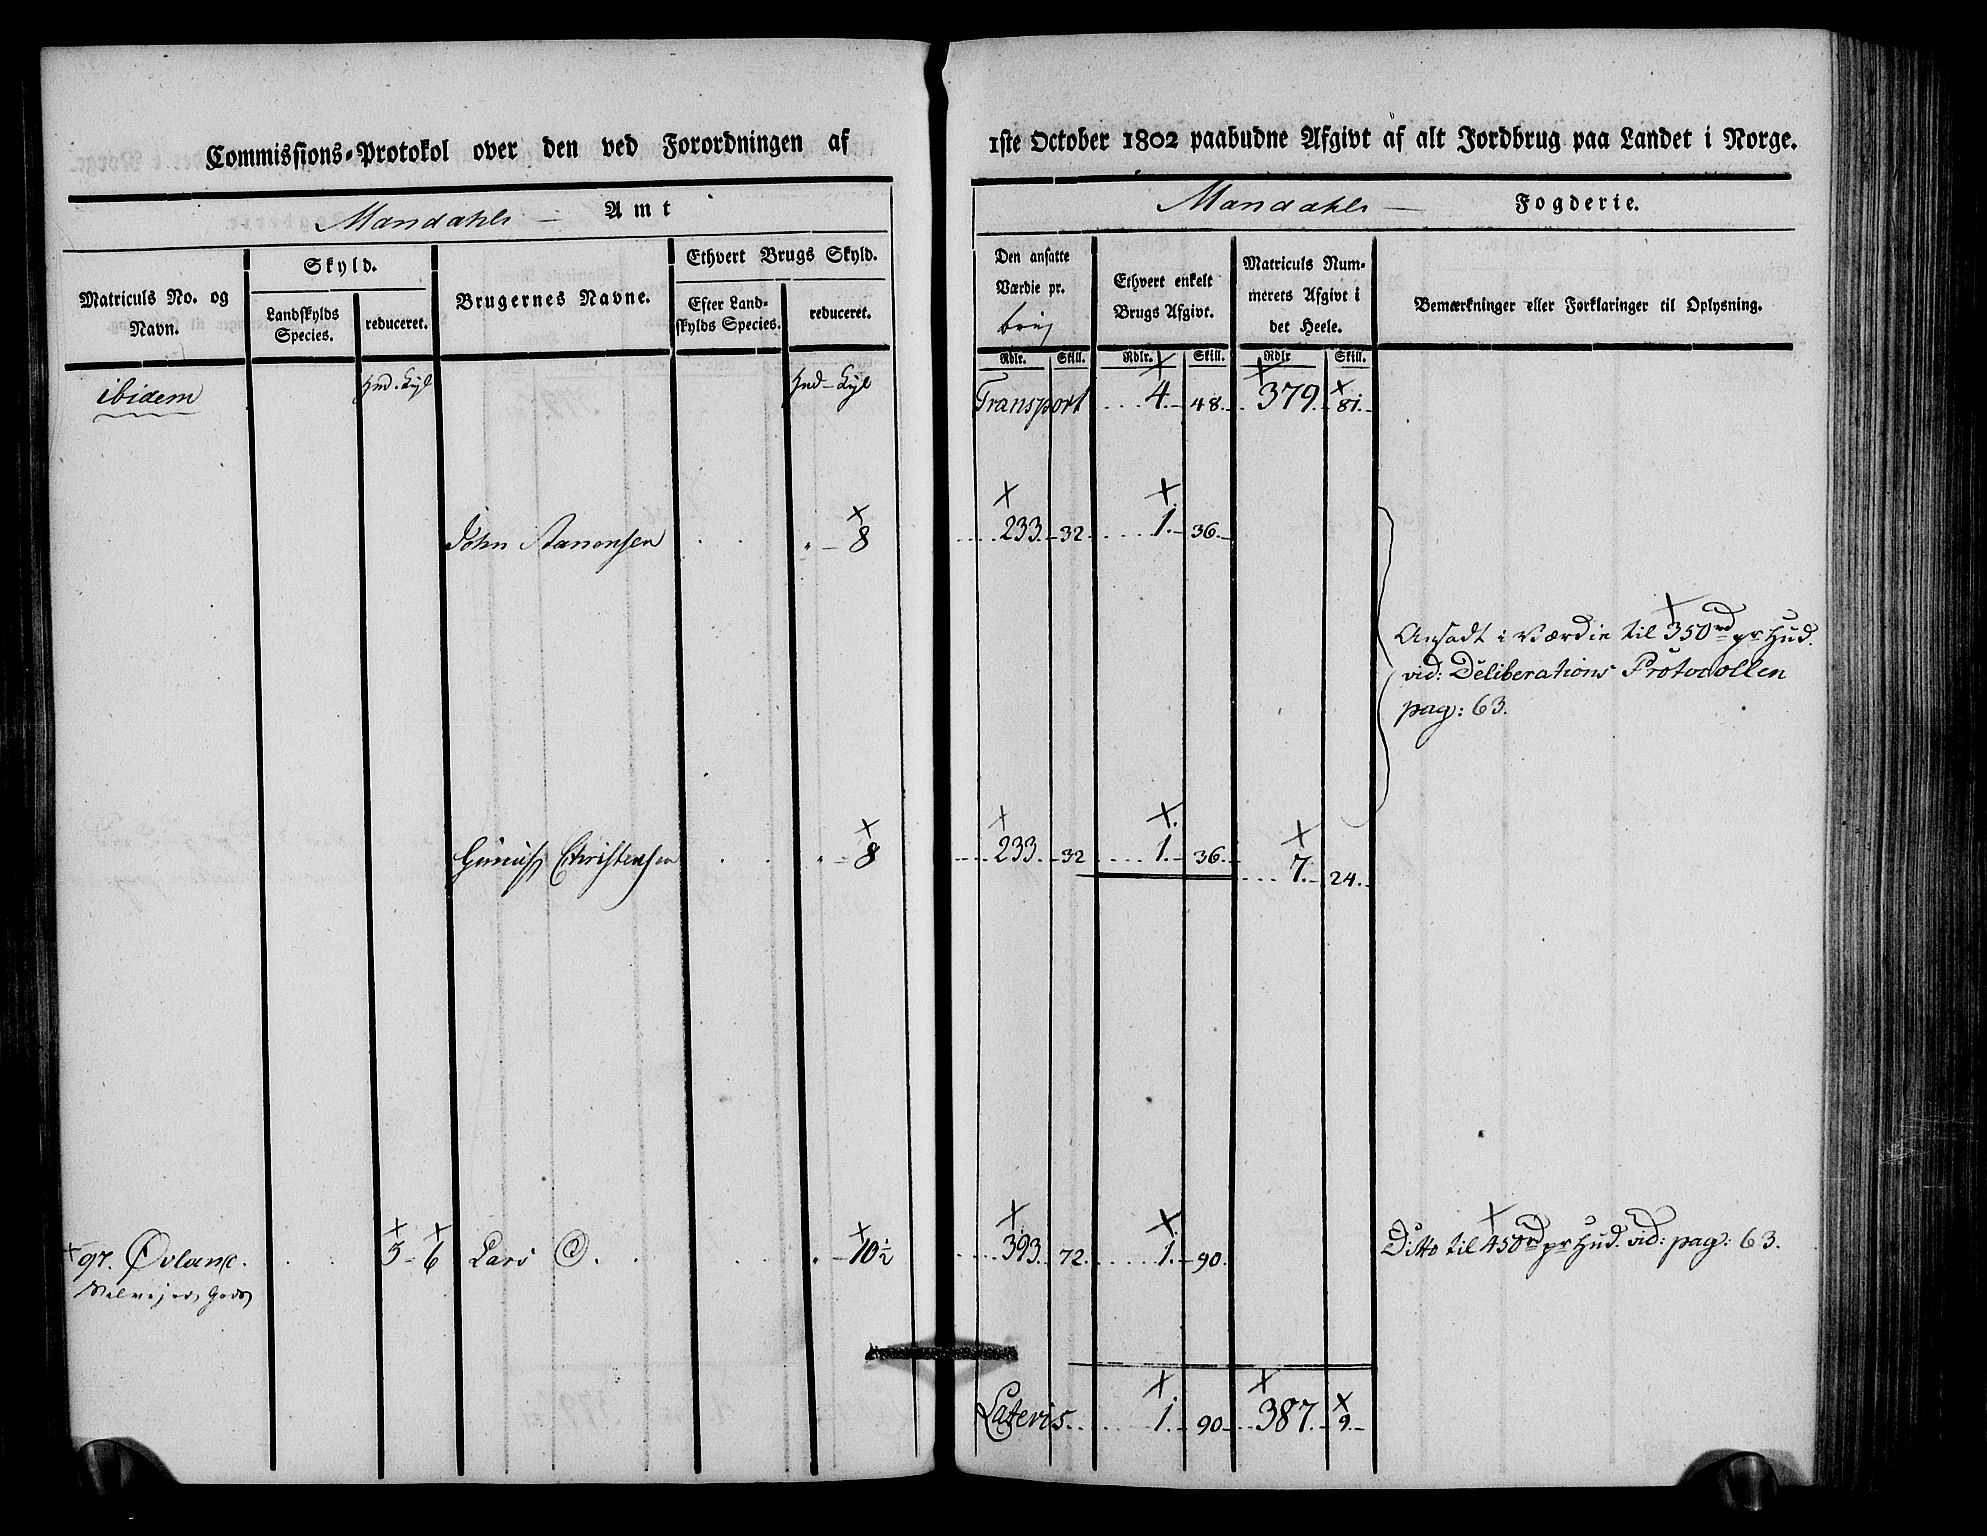 Commissions-Protokol over den ved Forordningen af
Mandahls — Amt
Matriculs No. og Navn.
Skyld.
Landskylds Species.
reduceret.
Brugernes Navne.
Ethvert Brugs Skyld.
Efter Landskylds Species.
reduceret.
ibidem
John Aanonsen „ – 8
Christensen „ – 8
97. 5 – 6 Lars „ – 10 ½
Gods
1ste October 1802 paabudne Afgivt af alt Jordbrug paa Landet i Norge.
Mandahls — Fogderie.
Den ansatte Værdie pr. brug
Ethvert enkelt Brugs Afgivt.
Matriculs Nummerets Afgivt i det Heele.
Bemærkninger eller Forklaringer til Oplysning.
Rdlr. Skill. Rdlr. Skill. Rdlr Skill.
Transport 4. 48. 379. 81.
233. 32 1. 36.
Ansadt i Værdie til 350 rd pr Hud.
vid: Deliberations Protocollen
pag: 63.
233. 32 1. 36. 7. 24.
393. 72. 1. 90. Ditto til 450 rd pr Hud. vid: pag: 63.
Lateris. 1. 90 387. 9.